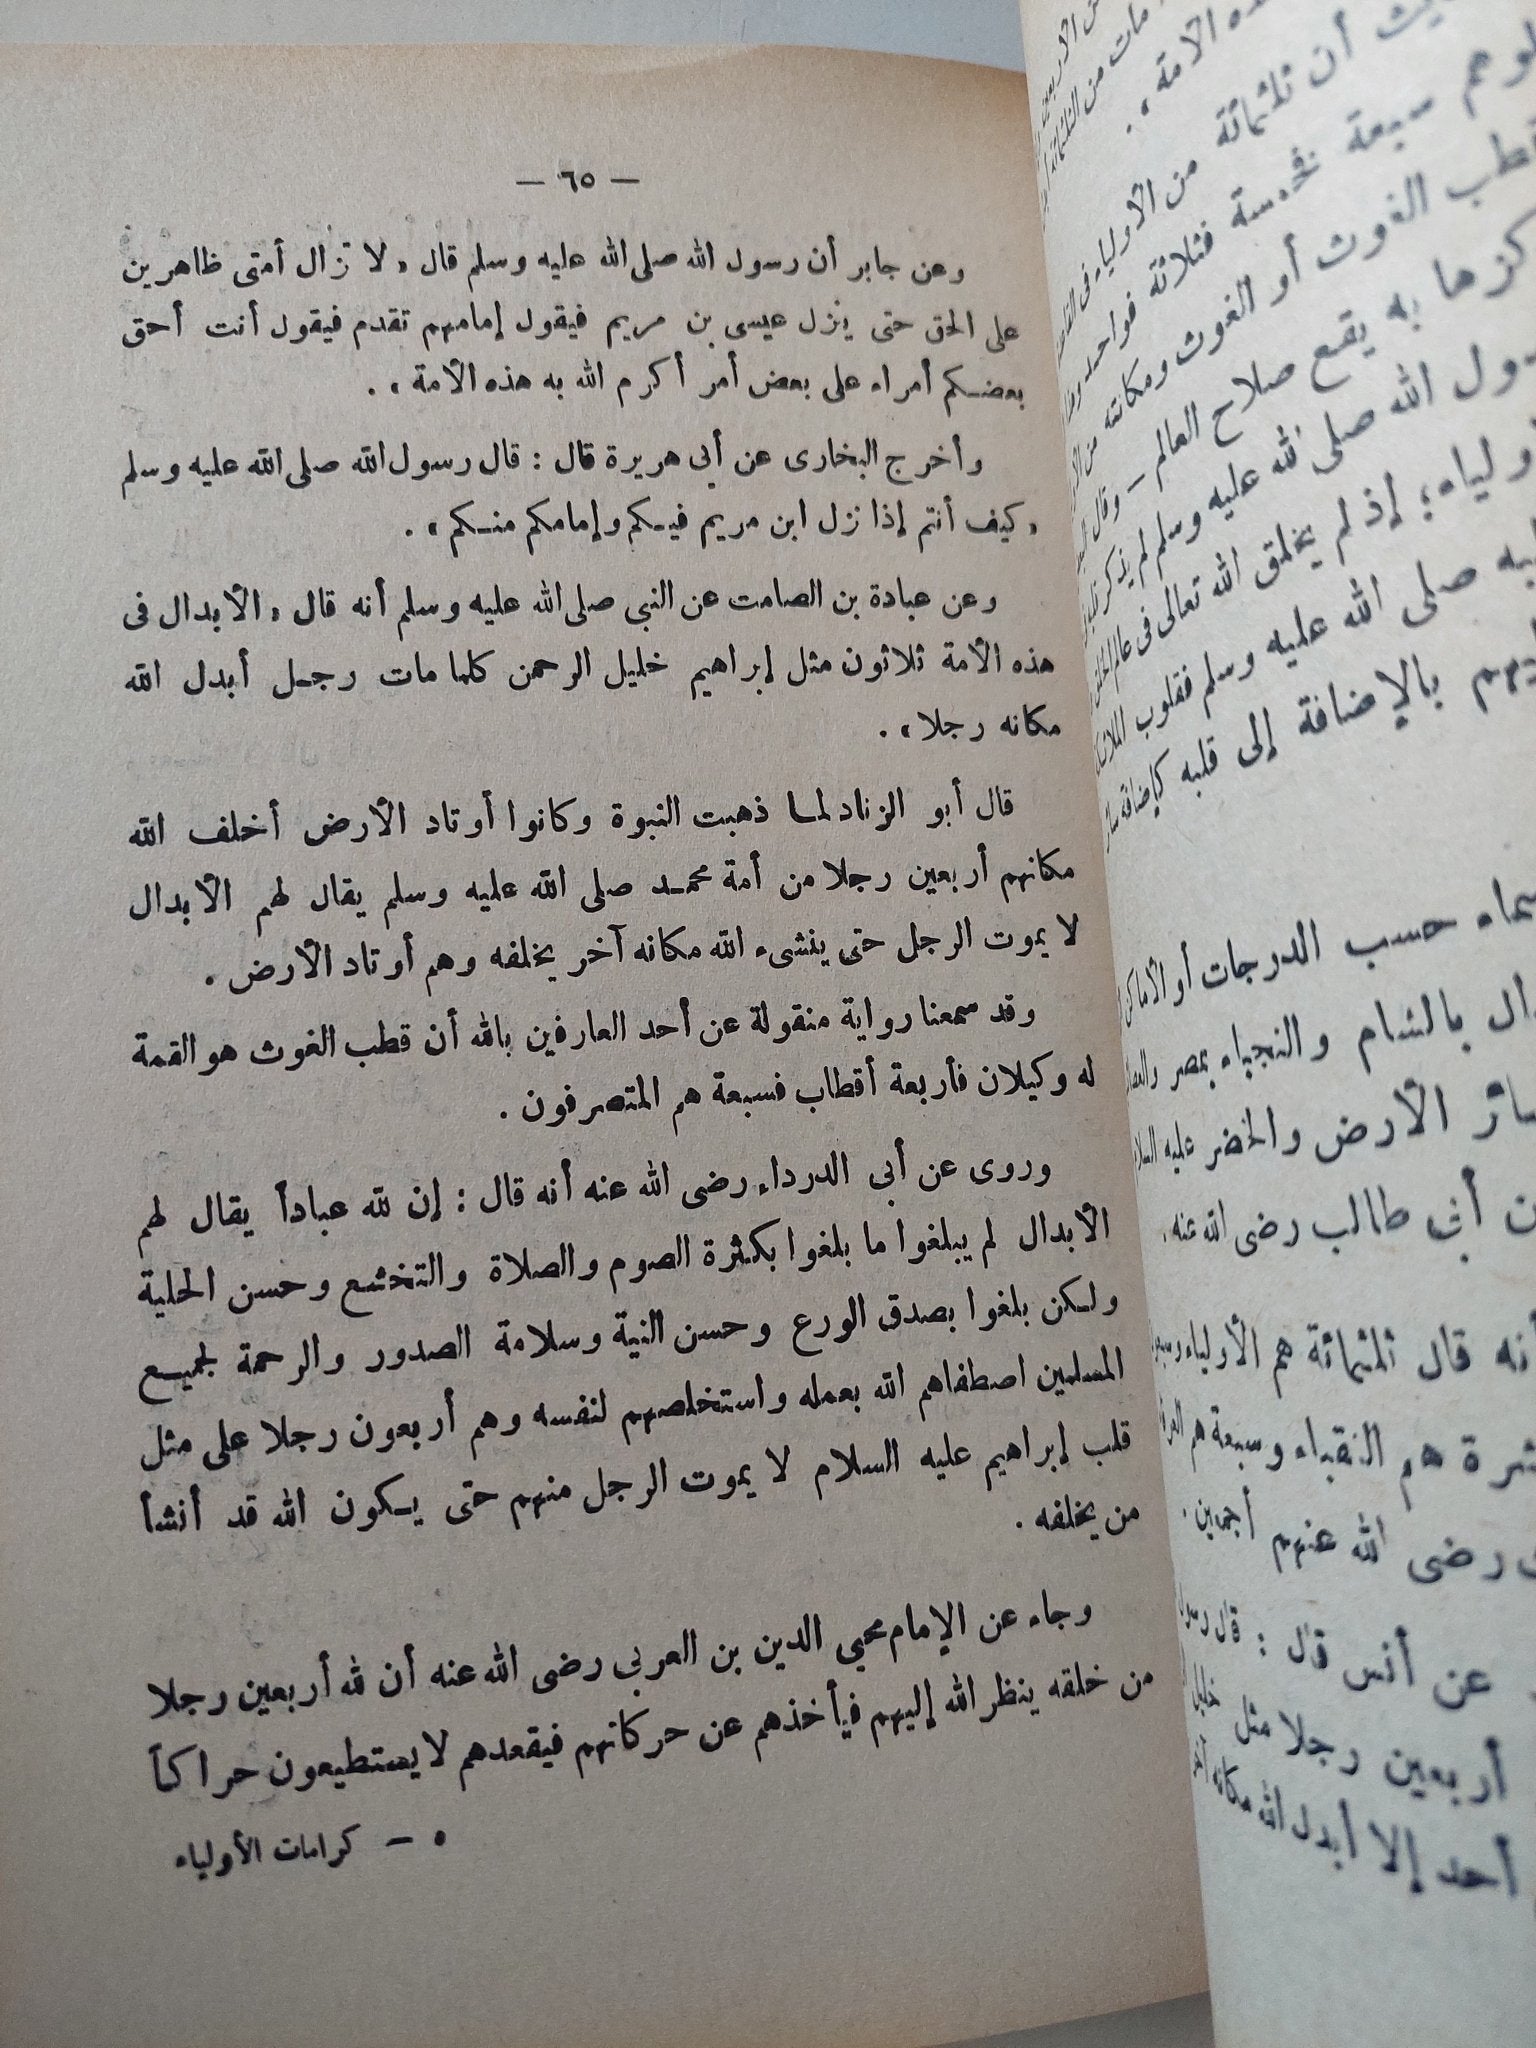 — ٦٥ —
وعن جابر أن رسول الله صلى الله عليه وسلم قال «لا تزال أمتى ظاهرين
على الحق حتى ينزل عيسى بن مريم فيقول إمامهم تقدم فيقول أنت أحق
بعضكم أمراء على بعض أمر أكرم الله به هذه الأمة» .
وأخرج البخارى عن أبى هريرة قال : قال رسول الله صلى الله عليه وسلم
«كيف أنتم إذا نزل ابن مريم فيكم وإمامكم منكم» .
وعن عبادة بن الصامت عن النبى صلى الله عليه وسلم أنه قال «الأبدال فى
هذه الأمة ثلاثون مثل إبراهيم خليل الرحمن كلما مات رجل أبدل الله
مكانه رجلا» .
قال أبو الزناد لما ذهبت النبوة وكانوا أوتاد الأرض أخلف الله
مكانهم أربعين رجلا من أمة محمد صلى الله عليه وسلم يقال لهم الأبدال
لا يموت الرجل حتى ينشىء الله مكانه آخر يخلفه وهم أوتاد الأرض .
وقد سمعنا رواية منقولة عن أحد العارفين بالله أن قطب الغوث هو القمة
له وكيلان فأربعة أقطاب فسبعة هم المتصرفون .
وروى عن أبى الدرداء رضى الله عنه أنه قال : إن لله عباداً يقال لهم
الأبدال لم يبلغوا ما بلغوا بكثرة الصوم والصلاة والتخشع وحسن الحلية
ولكن بلغوا بصدق الورع وحسن النية وسلامة الصدور والرحمة لجميع
المسلمين اصطفاهم الله بعمله واستخلصهم لنفسه وهم أربعون رجلا على مثل
قلب إبراهيم عليه السلام لا يموت الرجل منهم حتى يكون الله قد أنشأ
من يخلفه .
وجاء عن الإمام محيي الدين بن العربي رضى الله عنه أن لله أربعين رجلا
من خلقه ينظر الله إليهم فيأخذهم عن حركاتهم فيقعدهم لا يستطيعون حراكاً
٥ — كرامات الأولياء
هذه الأمة» .
أن ثلثمائة من الأولياء فى
سبعة فخمسة فثلاثة فواحد
قطب الغوث أو الغوث ومكانته من
به يقع صلاح العالم — وقال
الله صلى الله عليه وسلم لم يذكر
إذ لم يخلق الله تعالى فى عالم
صلى الله عليه وسلم فقلوب
بالإضافة إلى قلبه كإضافة
حسب الدرجات أو الأماكن
بالشام والنجباء بمصر
الأرض والخضر عليه
أبى طالب رضى الله عنه .
أنه قال ثلثمائة هم الأولياء
هم النقباء وسبعة هم
رضى الله عنهم أجمعين .
عن أنس قال : قال رسول
أربعين رجلا مثل خليل
أحد إلا أبدل الله مكانه